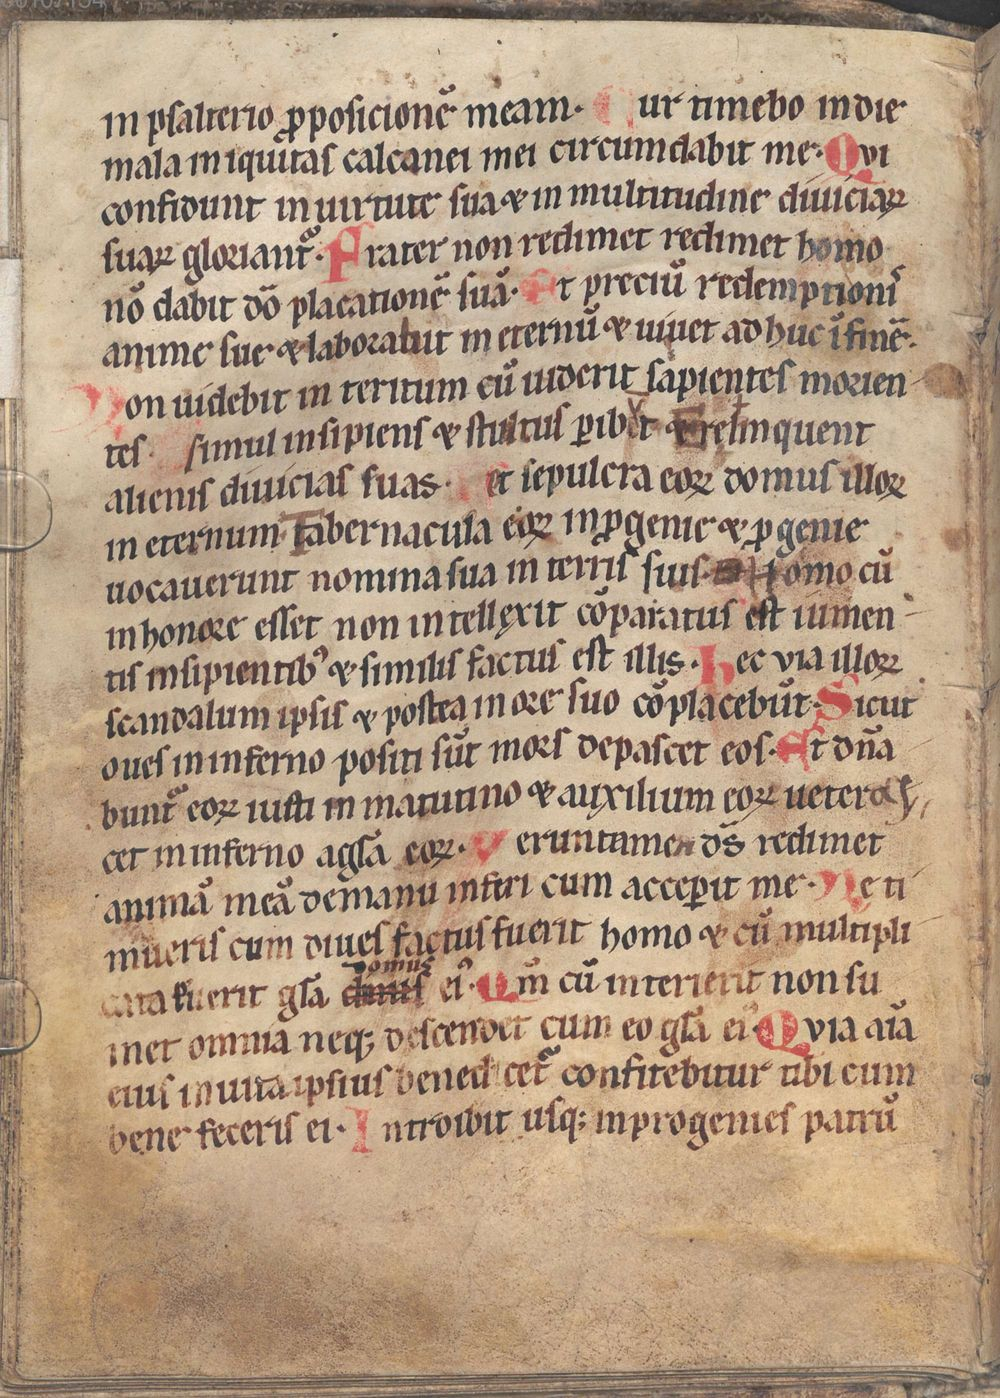 in psalterio ꝓposicionē meam· Cur timebo in die
mala iniquitas calcanei mei circumdabit me· Qvi
confidunt in uirtute sua ⁊ in multitudine diuiciaꝝ
suaꝝ gloriantᷓ· Frater non redimet redimet homo
nō dabit dō placationē suā· Et preciū redemptionis
anime sue ⁊ laborabit in eternū ⁊ uiuet ad huc ī finē·
Non uidebit in teritum cū uiderit sapientes morien
tes· simul insipiens ⁊ stultus ꝑibūt ⁊ relinquent
alienis diuicias suas· et sepulcra eoꝝ domus illoꝝ
in eternum Tabernacula eoꝝ in ꝓgenie ⁊ ꝓgenie
uocauerunt nomina sua in terris suis· Homo cū
in honore esset non intellexit cōparatus est iumen
tis insipientibꝰ ⁊ similis factus est illis· hec via illoꝝ
scandalum ipsis ⁊ postea in ore suo cōplacebūt· Sicut
oues in inferno positi sūt mors depascet eos· Et dn̄a
buntᷓ eoꝝ iusti in matutino ⁊ auxilium eoꝝ ueteraſ
cet in inferno agl̄a eoꝝ· Veruntamen ds̄ redimet
animā meā de manu inferi cum acceꝑit me· Ne ti
mueris cum diues factus fuerit homo ⁊ cū multipli
cata fuerit gl̄a domus eiꝰ· Qm̄ cū interierit non su
met omnia neqꝫ descendet cum eo gl̄a eiꝰ· Qvia aīa
eius in uita ipsius benedicetᷓ confitebitur tibi cum
bene feceris ei· Introibit usqꝫ in progenies patrū